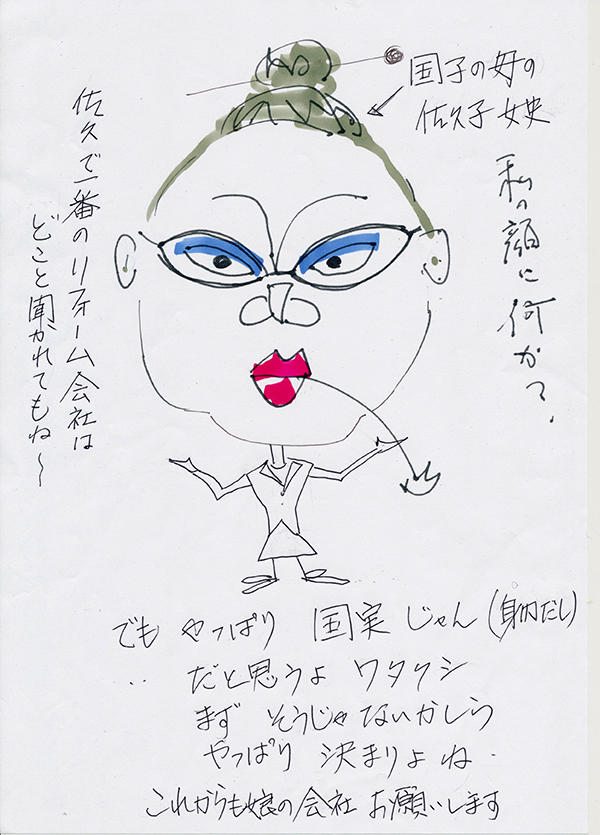 国子の母の
佐久子女史
私の顔に何か?
佐久で一番のリフォーム会社は
どこと聞かれてもね〜
でも やっぱり 国実 じゃん(身内だし)
‥ だと思うよ ワタクシ
まず そうじゃないかしら
やっぱり 決まりよね
これからも娘の会社 お願いします